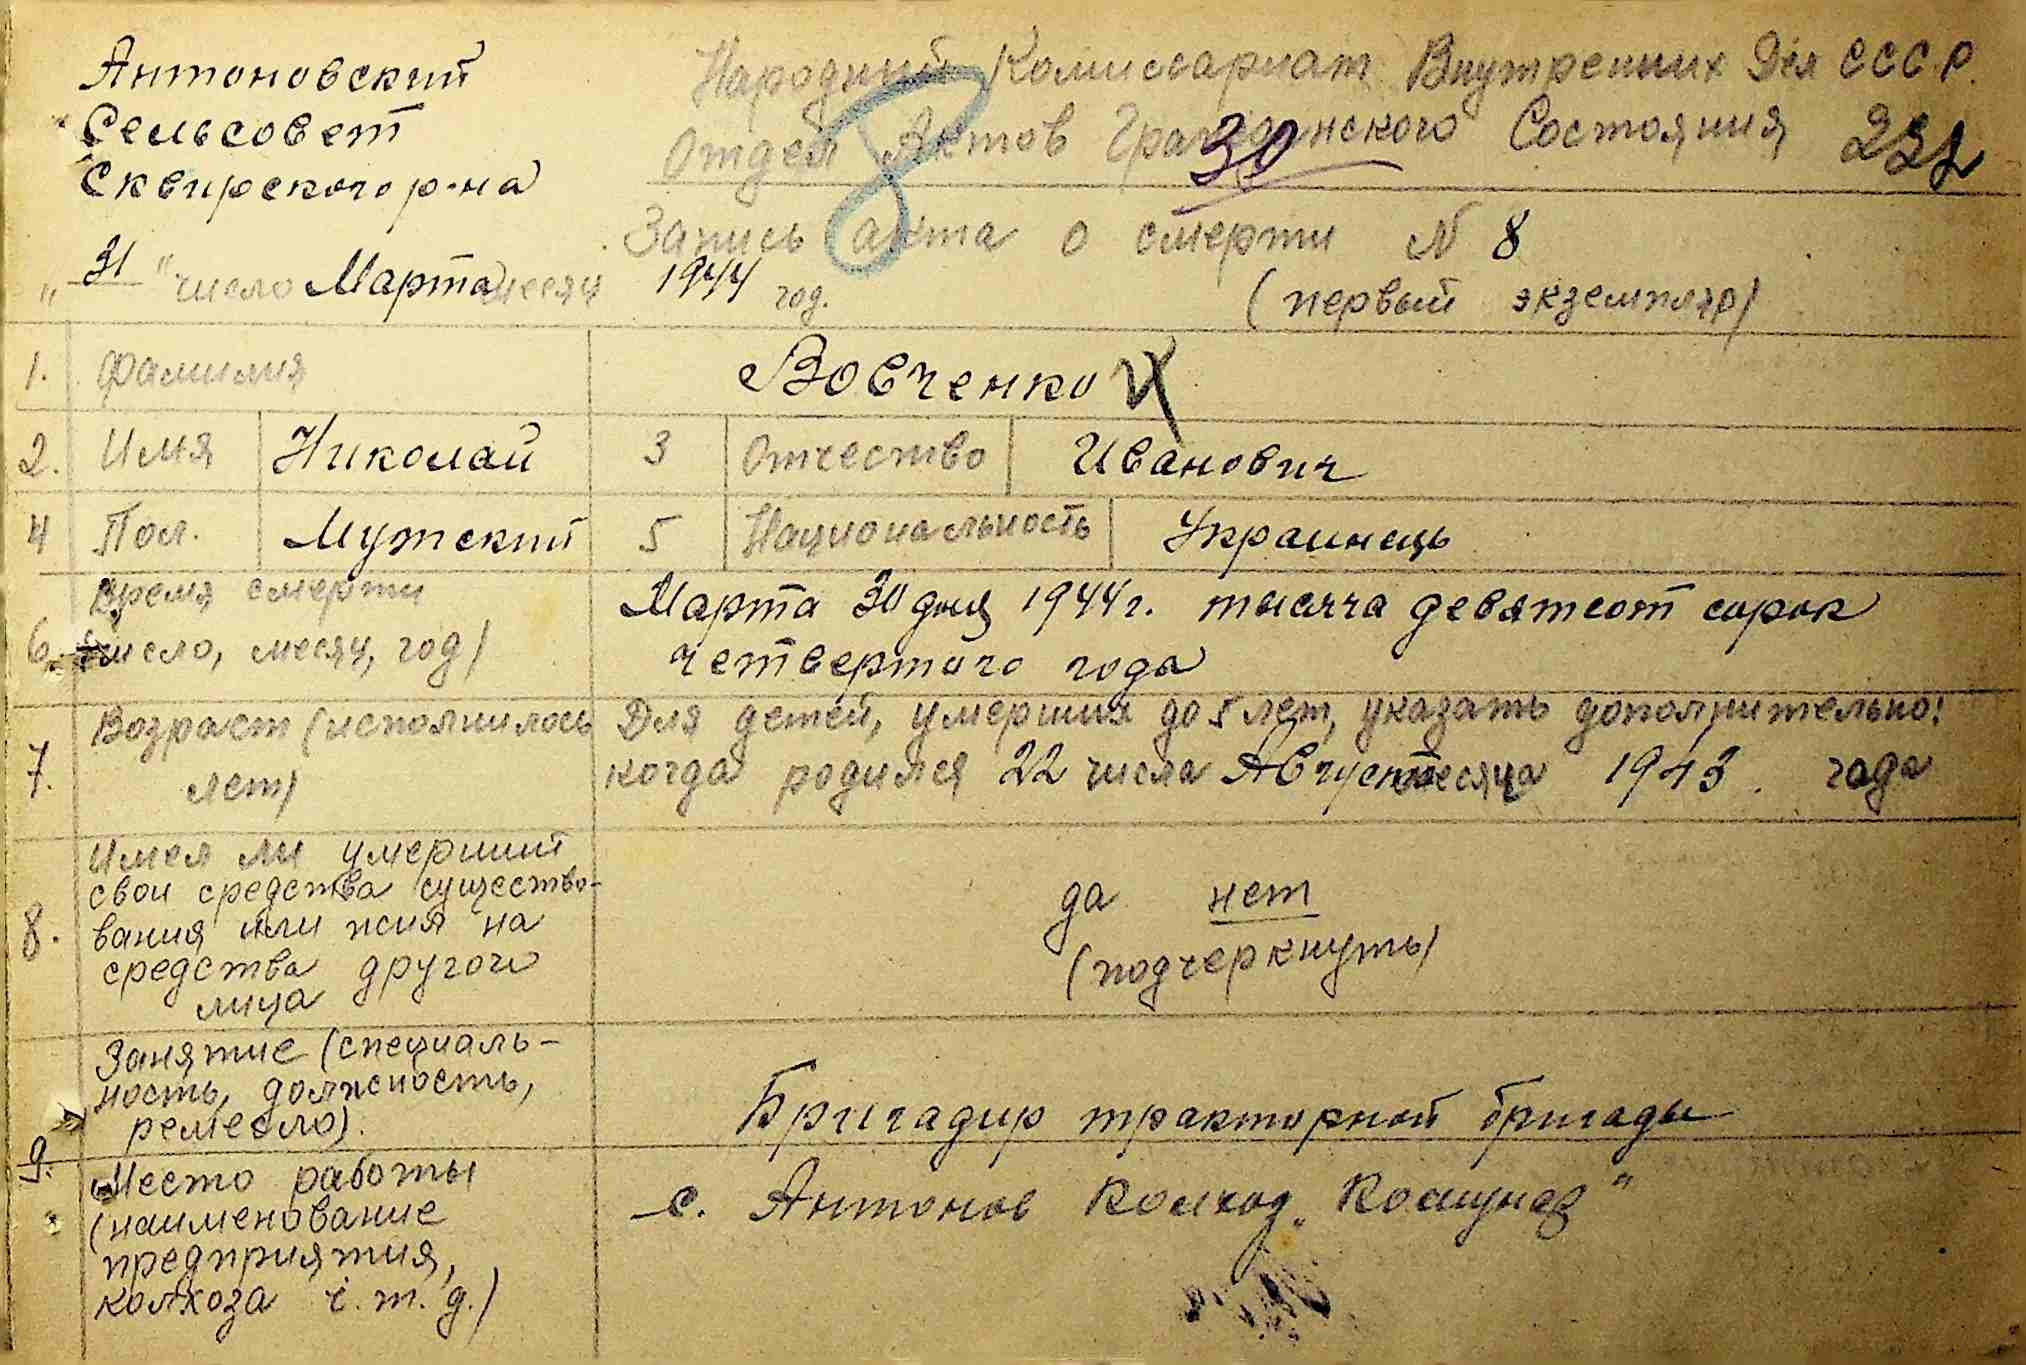 Антоновский
Сельсовет
Сквирского р-на
Народный Комиссариат Внутренних Дел СССР.
Отдел Актов Гражданского Состояния
8
30
232
Запись акта о смерти N 8
„ 31 " число Марта месяц 1944 год.
(первый экземпляр)
1. Фамилия Вовченко
2. Имя Николай 3 Отчество Иванович
4 Пол. Мужский 5 Национальность Украинець
6. Время смерти
число, месяц, год)
Марта 30 дня 1944 г. тысяча девятсот сорок
четвертого года
7. Возраст (исполнилось
лет)
Для детей, умерших до 5 лет, указать дополнительно:
когда родился 22 числа Август месяца 1943. года
8. Имел ли умерший
свои средства существо-
вания или жил на
средства другого
лица
да нет
(подчеркнуть)
9. Занятие (специаль-
ность, должность,
ремесло).
Бригадир тракторной бригады
Место работы
(наименование
предприятия,
колхоза і. т. д.)
с. Антонов Колход „